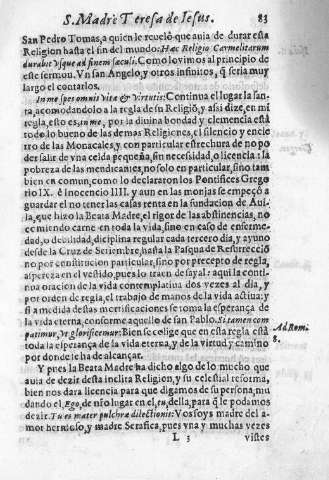 S. Madre Teresa de Iesus. 83
San Pedro Tomas, a quien le reuelò que auia de durar esta
Religion hasta el fin del mundo: Hæc Religio Carmelitarum
durabit vsque ad finem sæculi. Como lo vimos al principio de
este sermon. Vn san Angelo, y otros infinitos, q̃ seria muy
largo el contarlos.
In me spes omnis vitæ & virtutis: Continua el lugar la san-
ta, acomodandolo a la regla de su Religiõ, y assi dize, en mi
regla, esto es, in me, por la diuina bondad y clemencia està
todo lo bueno de las demas Religiones, el silencio y encie
rro de las Monacales, y con particular estrechura de no po
der salir de vna celda pequeña, sin necessidad, o licencia: la
pobreza de las mendicantes, no solo en particular, sino tam
bien en comun, como lo declararon los Pontifices Grego
rio IX. è Inocencio IIII. y aun en las monjas se empeçò a
guardar el no tener las casas renta en la fundacion de Aui-
la, que hizo la Beata Madre, el rigor de las abstinencias, no
comiendo carne en toda la vida, sino en caso de enferme-
dad, o debilidad, diciplina regular cada tercero dia, y ayuno
desde la Cruz de Setiembre, hasta la Pasqua de Resurreciõ
no por constitucion particular, sino por precepto de regla,
aspereza en el vestido, pues lo traen de sayal: aqui la conti-
nua oracion de la vida contemplatiua dos vezes al dia, y
por orden de regla, el trabajo de manos de la vida actiua: y
si a medida destas mortificaciones se toma la esperança de
la vida eterna, conforme aquello de san Pablo. Si tamen com
patimur, vt glorificemur: Bien se colige que en esta regla està
toda la esperança de la vida eterna, y de la virtud y camino
por donde se ha de alcançar.
Ad Rom.
8.
Y pues la Beata Madre ha dicho algo de lo mucho que
auia de dezir desta inclita Religion, y su celestial reforma,
bien nos dara licencia para que digamos de su persona, mu
dando el, Ego, de nr̃o lugar en el, tu, della, para q̃ le podamos
dezir. Tu es mater pulchræ dilectionis: Vos soys madre del a-
mor hermoso, y madre Serafica, pues vna y muchas vezes
L 3 vistes